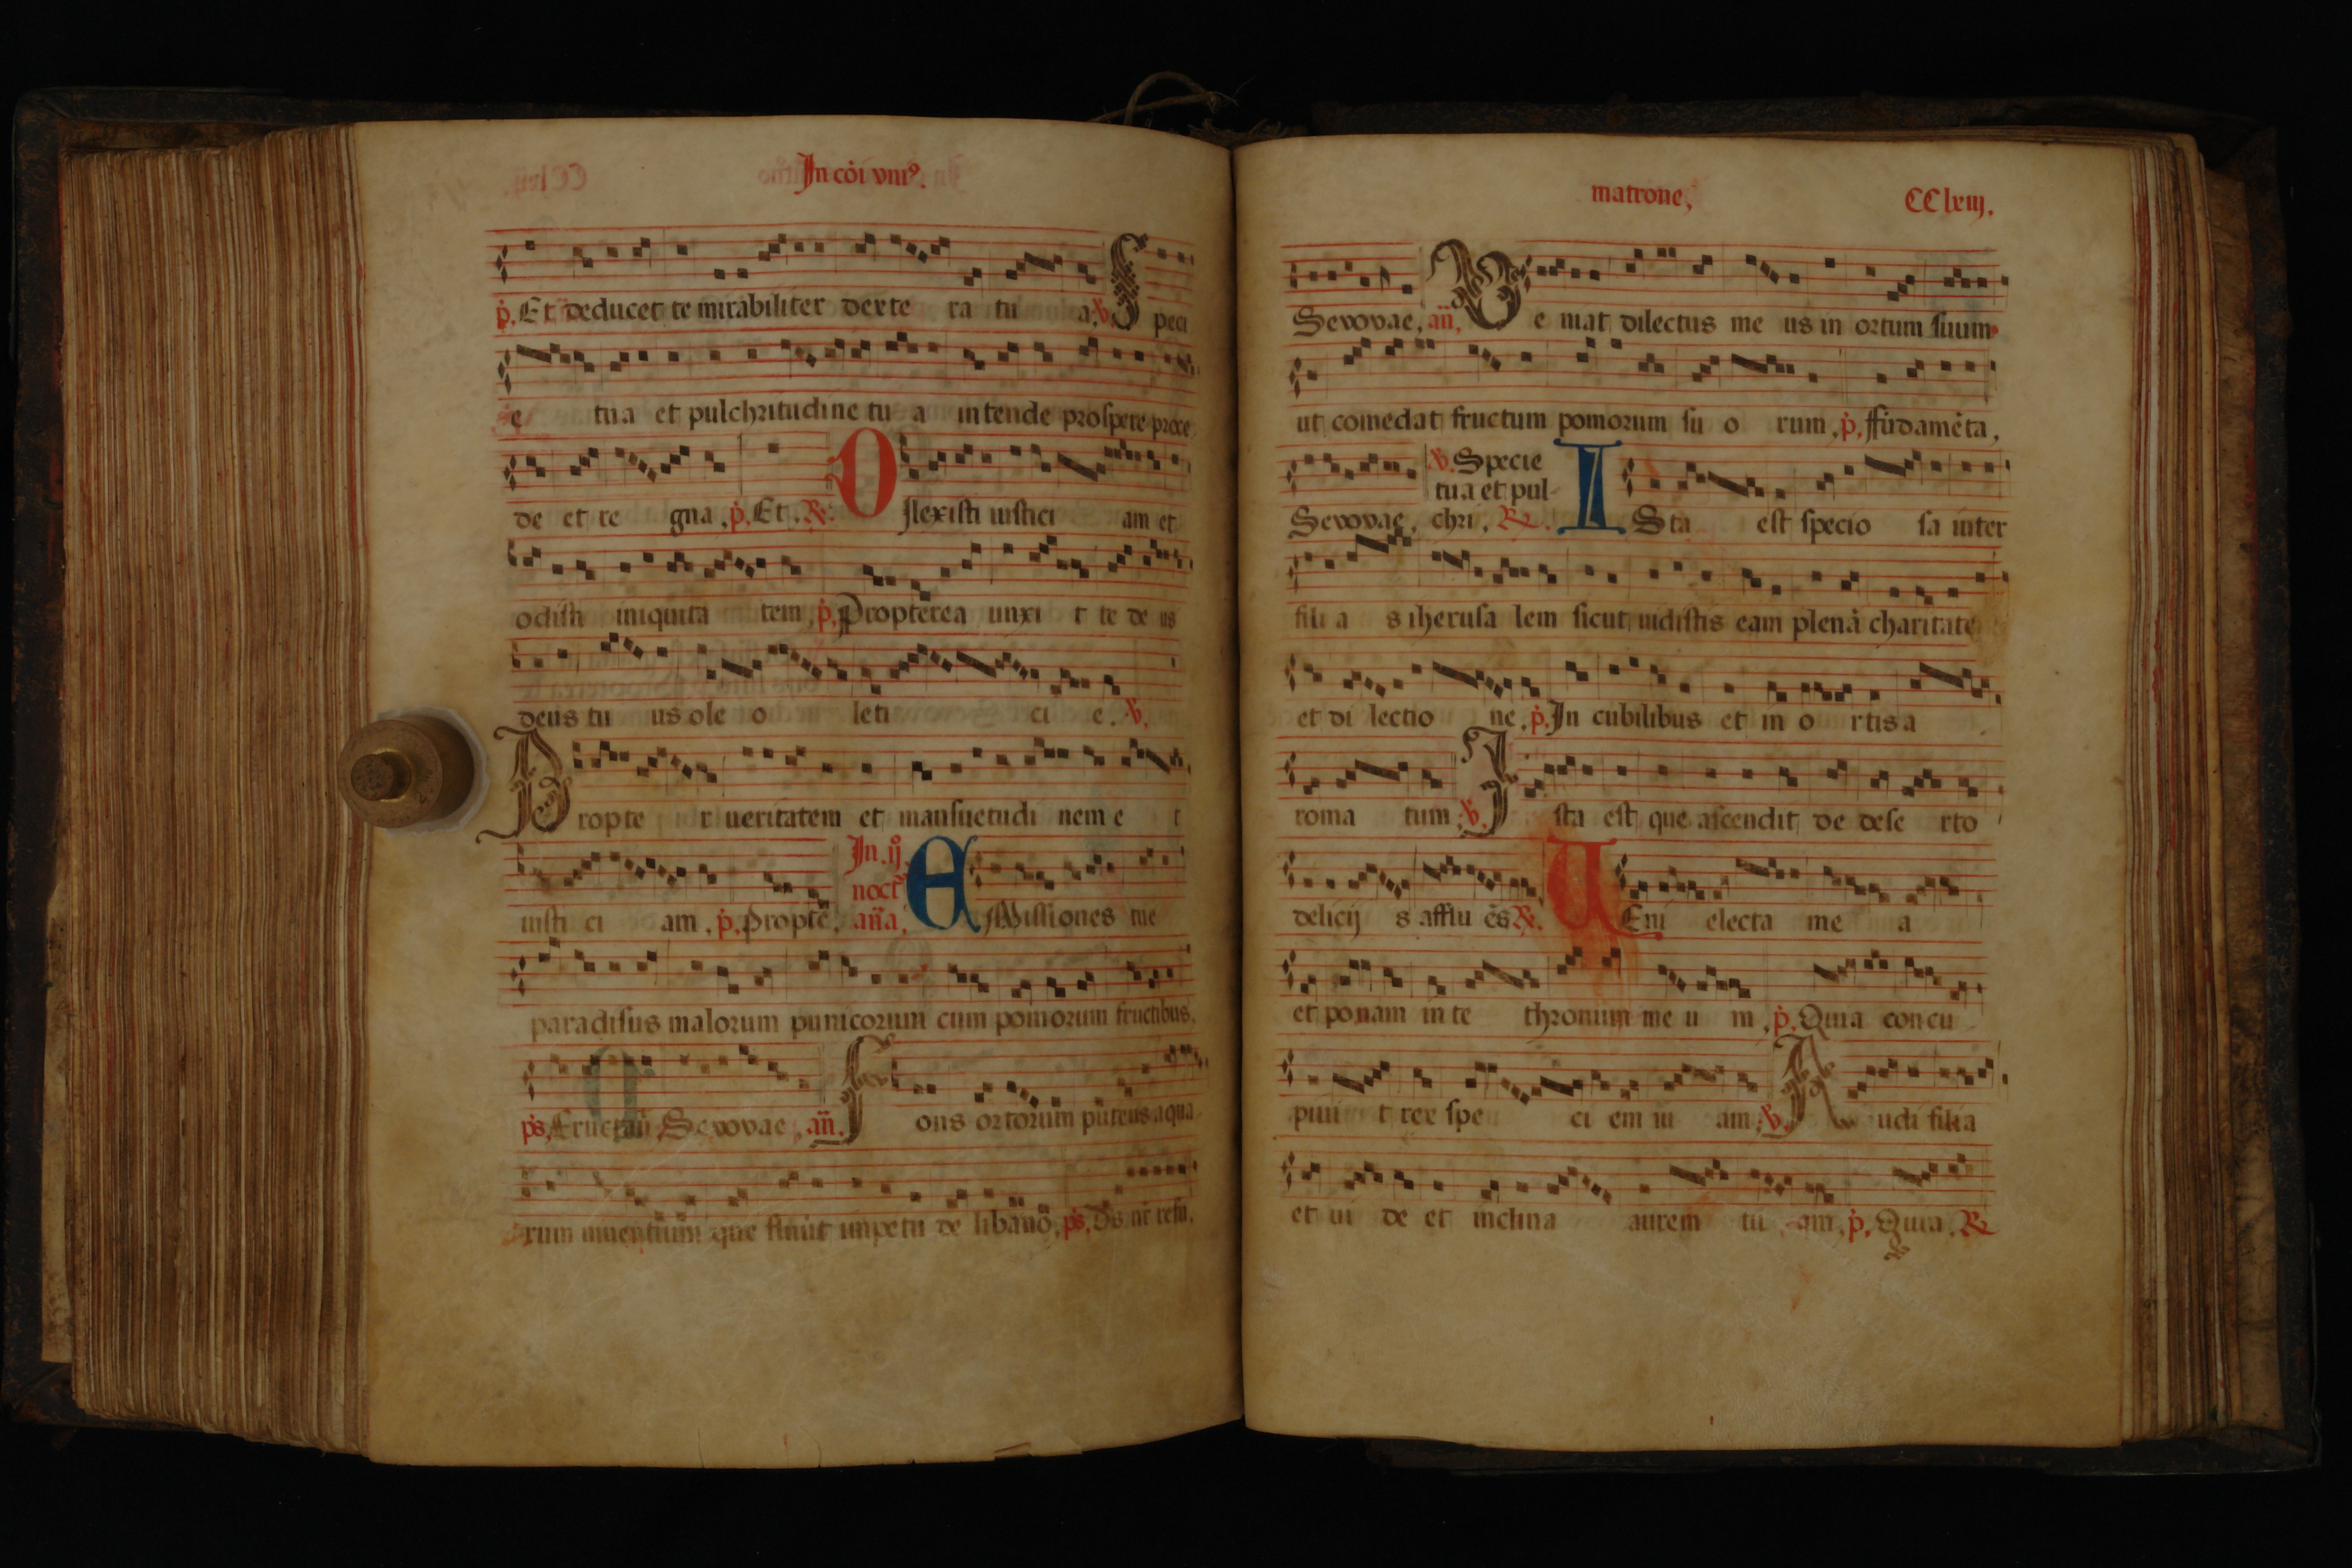 In cōi vniꝰ.
p̄. Et deducet te mirabiliter dexte ra tu a, ℣. Speci
e tua et pulchritudine tu a intende prospere proce
de et re gna, p̄. Et, ℟. Dilexisti iustici am et
odisti iniquita tem, p̄. Propterea unxi t te de us
deus tu us ole o leti ci e. ℣.
Propte r ueritatem et mansuetudi nem e t
iusti ci am, p̄. propte, In. ij noct an̄a, Emissiones tue
paradisus malorum punicorum cum pomorum fructibus.
ps, Sevovae, an̄. Fons ortorum puteus aqua
rum uiuentium que fluūt impetu de libano, ps,
matrone, CClxiij.
Sevovae, an̄, Ve niat dilectus me us in ortum suum
ut comedat fructum pomorum su o rum, p̄. ffūdamēta,
Sevovae, ℣. Specie tua et pul chri, ℟. ISta est specio sa inter
fili a s iherusa lem sicut uidistis eam plenā charitate
et di lectio ne, p̄. In cubilibus et in o rtis a
roma tum, ℣. Ista est que ascendit de dese rto
delicij s afflu ēs ℟. UEni electa me a
et ponam in te thronum me u m, p̄. Quia concu
piui t rex spe ci em tu am, ℣. Audi filia
et ui de et inclina aurem tu am, p̄. Quia, ℟